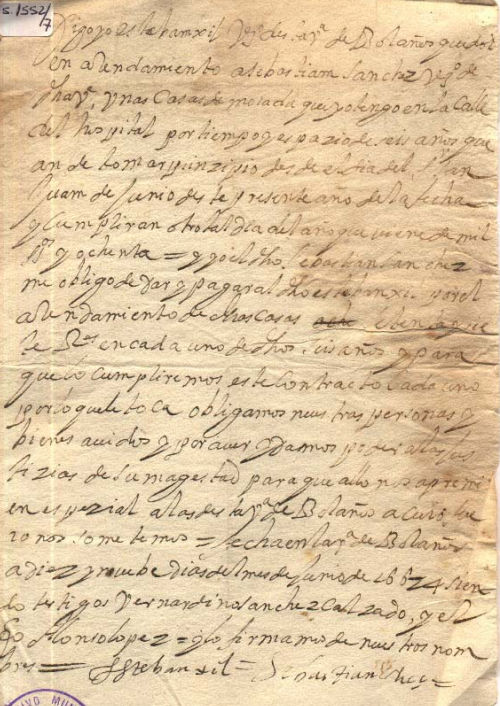 s. 1552/7
Digo yo esteban xil Vº desta vª de Bolaños que doi
en arendamiento a sebastiam sanchez veº de
dha vª, Vnas Casas de morada que yo tengo en la Calle
del hospital por tiempo y espazio de seis años que
an de tomar prinzipio desde el dia del S. san
Juam de Junio deste presente año de la fecha
y cumpliran otro tal dia del año que viene de mil
y ochenta = y yo el dho sebastian sanchez
me obligo de dar y pagar al dho esteban xil por el
arendamiento de dhas casas
te Rs en cada uno de dhos seis años y para
que lo cumpliremos este Contracto Cada uno
por lo que le toca obligamos nuestras personas y
bienes auidos y por auer Damos poder a las jus
tizias de su magestad para que a ello nos apremi
en espezial a las desta vª de Bolaños a Cuio fue
ro nos sometemos = fecha en la vª de Bolaños
a diez y nuebe dias del mes de Junio de sien
do testigos Vernardino sanchez Calzado, y el
Alonso lopez = y lo firmamos de nuestros nom
bres = Esteban xil = Sebastian